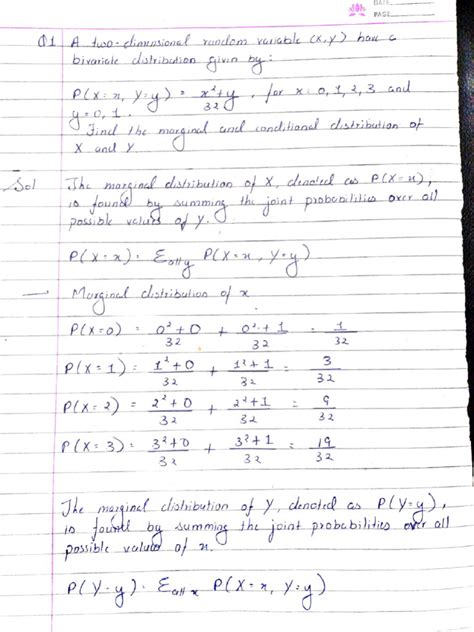 DATE
PAGE
Q1 A two-dimensional random variable (X,Y) have a
bivariate distribution given by:
P(X=x, Y=y) = x²+y / 32, for x=0, 1, 2, 3 and
y=0, 1.
Find the marginal and conditional distribution of
X and Y.
Sol The marginal distribution of X, denoted as P(X=x),
is found by summing the joint probabilities over all
possible values of Y.
P(X=x) = Σ all y P(X=x, Y=y)
— Marginal distribution of x
P(X=0) = 0²+0 / 32 + 0²+1 / 32 = 1 / 32
P(X=1) = 1²+0 / 32 + 1²+1 / 32 = 3 / 32
P(X=2) = 2²+0 / 32 + 2²+1 / 32 = 9 / 32
P(X=3) = 3²+0 / 32 + 3²+1 / 32 = 19 / 32
The marginal distribution of Y, denoted as P(Y=y),
is found by summing the joint probabilities over all
possible values of x.
P(Y=y) = Σ all x P(X=x, Y=y)